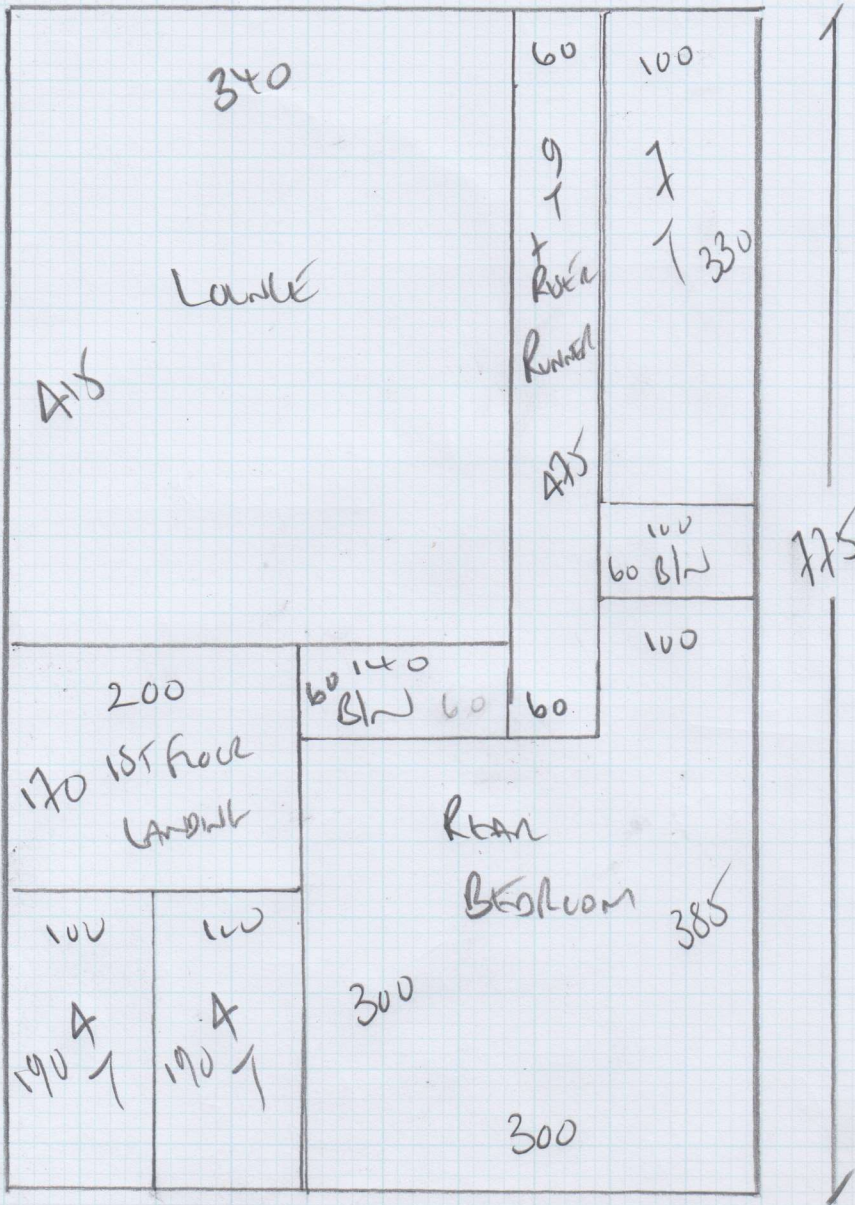 340
LOUNGE
415
60
9
T
+
RISER
RUNNER
475
60
100
7
T 330
100
60 B/N
100
775
200
170 1ST FLOOR
LANDING
60 140
B/N 60
REAR
BEDROOM
385
300
300
100
4
190 T
100
4
190 T